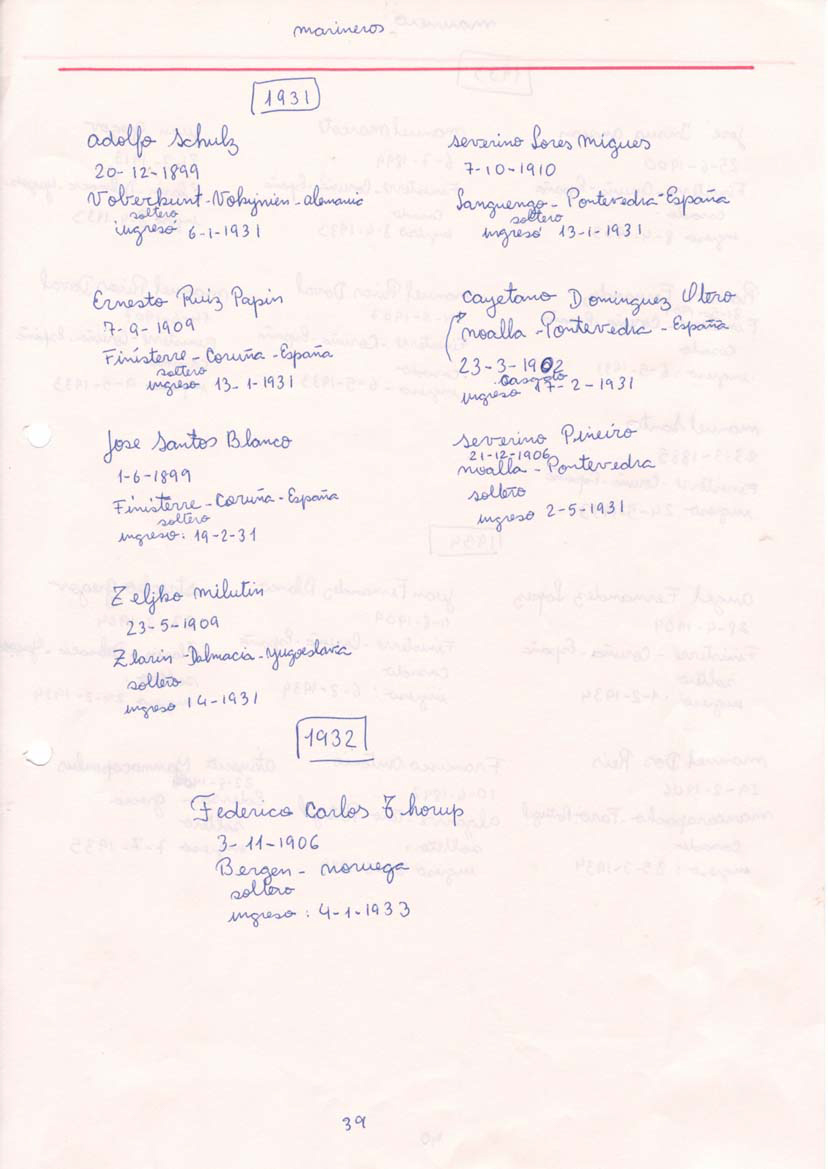 marineros
1931
adolfo Schulz
20-12-1899
Voberkunt-Vokynien-alemania
soltero
ingresó 6-1-1931
severino Lores Migues
7-10-1910
Sanguengo-Pontevedra-España
soltero
ingresó 13-1-1931
Ernesto Ruiz Papin
7-9-1909
Finisterre-Coruña-España
soltero
ingreso 13-1-1931
Cayetano Dominguez Otero
noalla-Pontevedra-España
23-3-1902
casado
ingreso 17-2-1931
Jose Santos Blanco
1-6-1899
Finisterre-Coruña-España
soltero
ingreso: 19-2-31
severino Piñeiro
21-12-1906
noalla-Pontevedra
soltero
ingreso 2-5-1931
Zeljko milutin
23-5-1909
Zlarin-Dalmacia-yugoeslavia
soltero
ingreso 14-1931
1932
Federico Carlos Thorup
3-11-1906
Bergen-noruega
soltero
ingreso: 4-1-1933
39